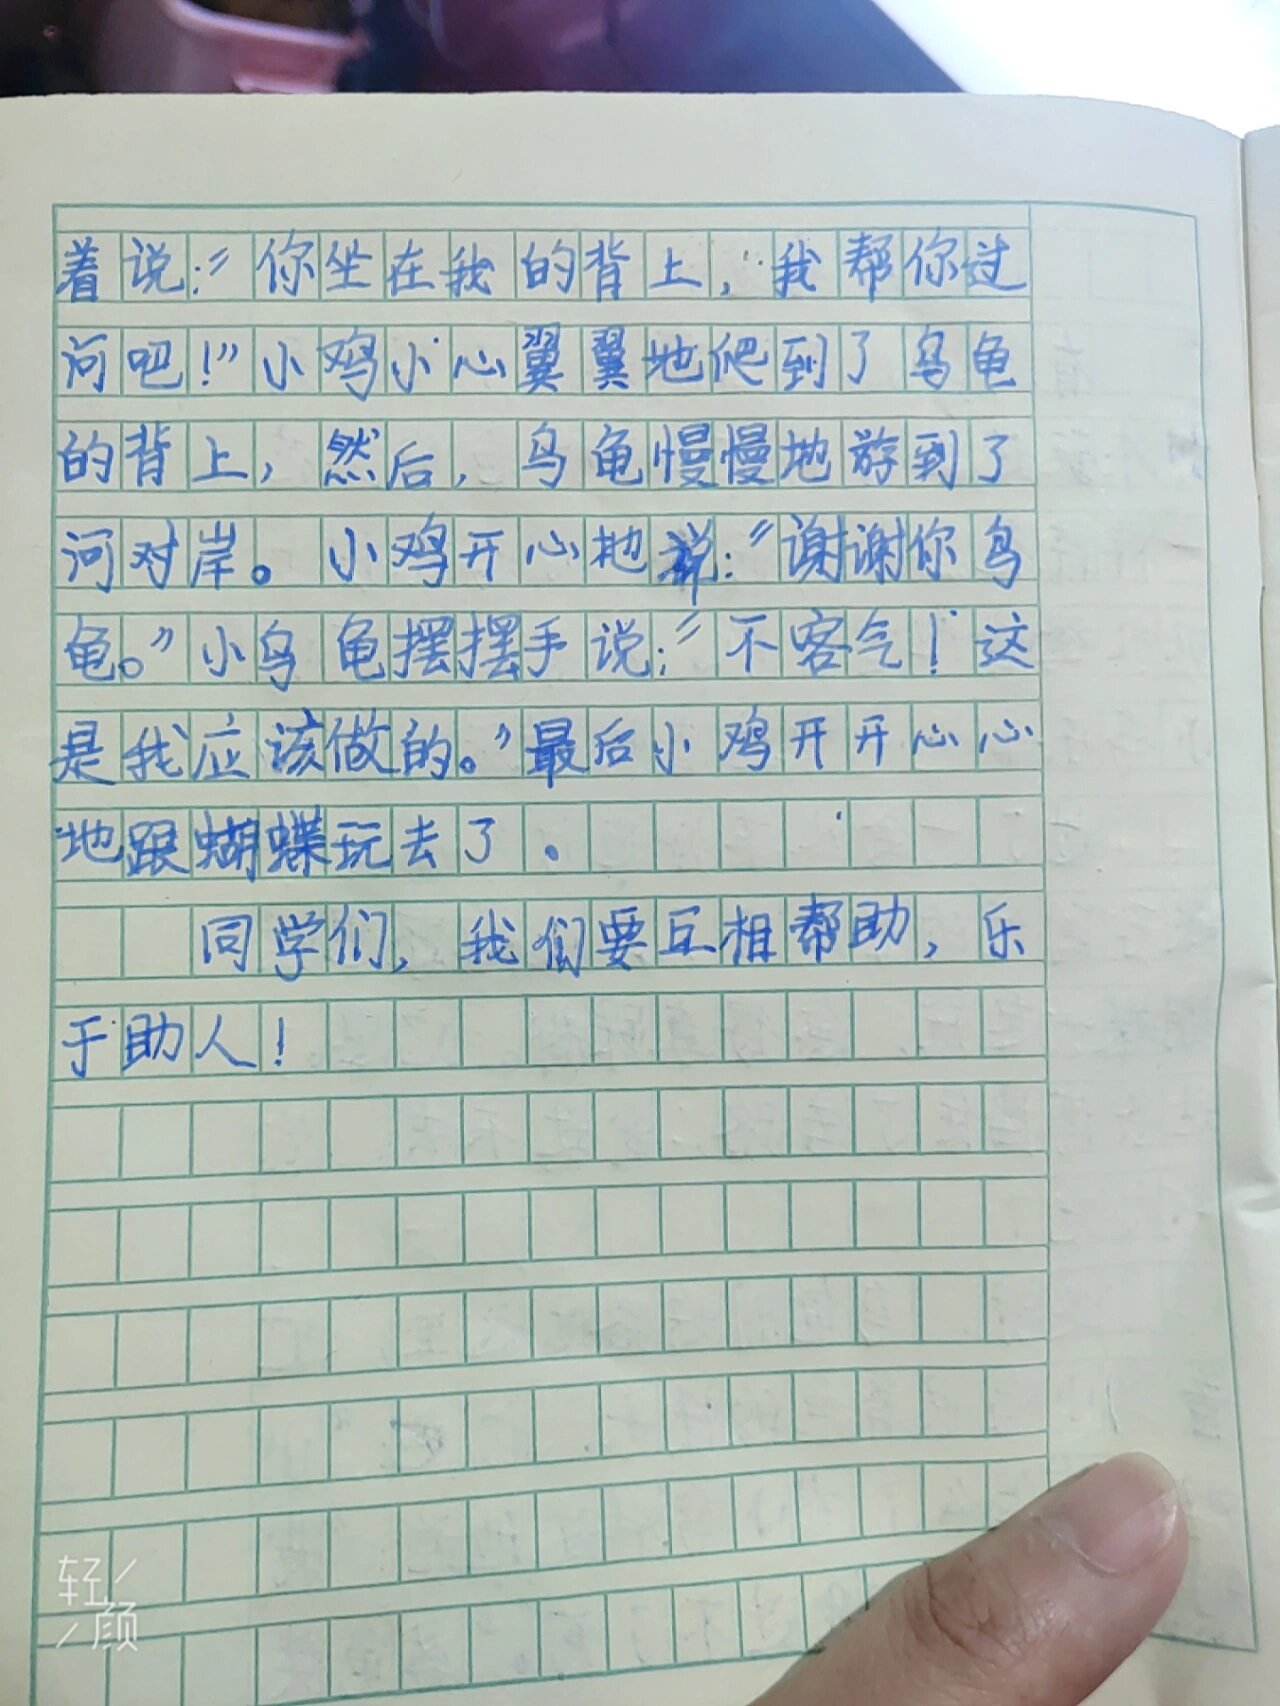 着说：“你坐在我的背上，我帮你过
河吧！”小鸡小心翼翼地爬到了乌龟
的背上，然后，乌龟慢慢地游到了
河对岸。小鸡开心地说：“谢谢你乌
龟。”小乌龟摆摆手说：“不客气！这
是我应该做的。”最后小鸡开开心心
地跟蝴蝶玩去了。
同学们，我们要互相帮助，乐
于助人！
轻颜